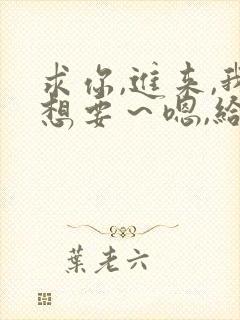 求你,進来,我
想要~嗯,給
葉老六